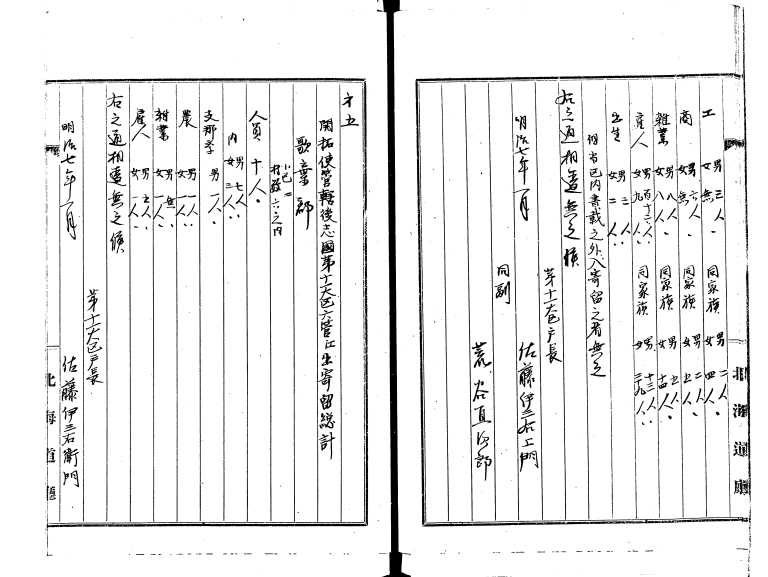 工 男三人、女無 同家族 男二人、女四人
商 男六人、女無 同家族 男二人、女五人
雑業 男八人、女八人 同家族 男五人、女十四人
雇人 男百十六人、女九人 同家族 男十三人、女三九人
出生 男三人、女二人
但書已内書載之外入寄留之者無之
右之通相違無之候
明治七年一月
第十一大区戸長
佐藤伊三右エ門
同副
荒谷直次郎
北海道庁
才五
開拓使管轄後志國第十一大区六管江出寄留総計
歌棄郡
小区二
人員十人、
内 男七人、女三人、
支那学 男一人、
農 男一人、女一人、
雑業 男無、女一人、
雇人 男五人、女一人、
右之通相違無之候
明治七年一月
第十一大区戸長
佐藤伊三右衛門
北海道廳